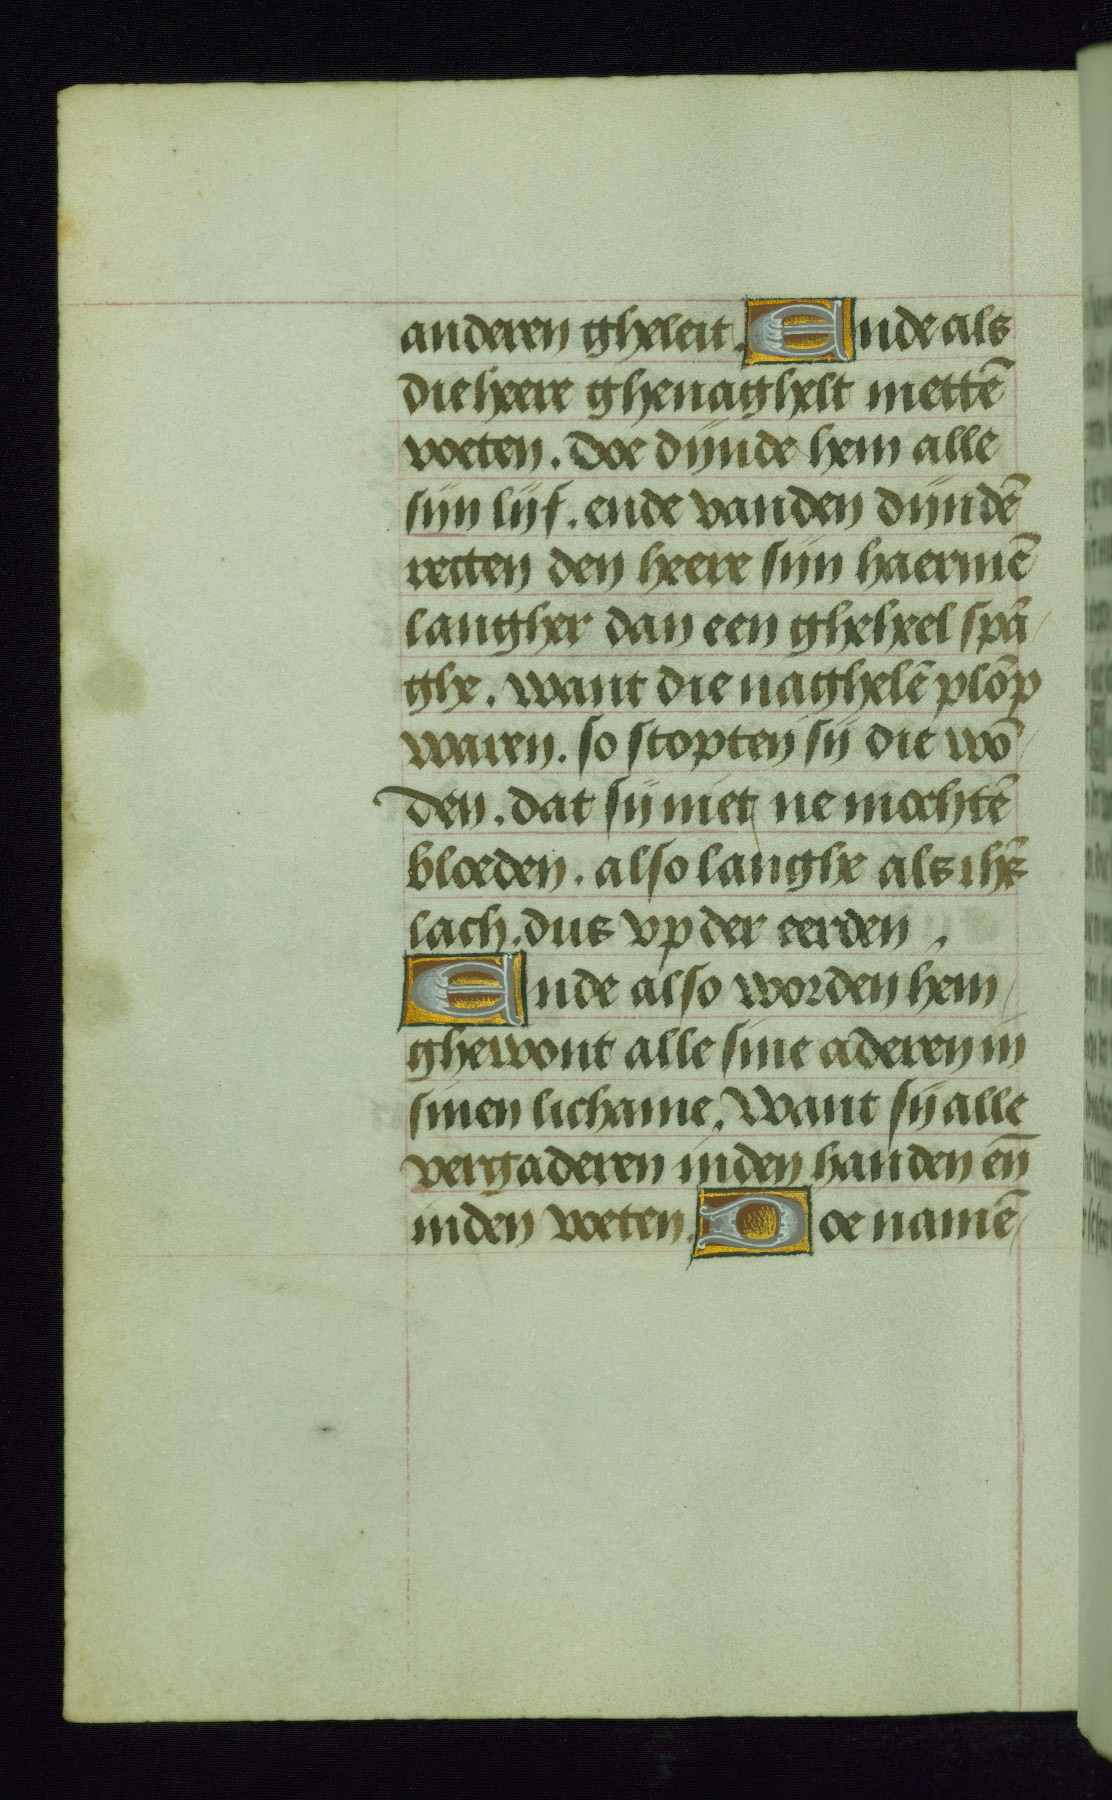 anderen gheleit. Ende als
die heere ghenaghelt mettē
voeten. doe dijnde hem alle
sijn lijf. ende van den dijndē
recten den heere sijn haermē
langher dan een gheheel spā
ghe. want die naghelē plōp
waren. so stopten sij die wō
den. dat sij niet ne mochtē
bloeden. also langhe als ihs̄
lach. dus vp der eerden.
Ende also worden hem
ghewont alle sine aderen in
sinen lichame. Want sij alle
vergaderen inden handen eñ
inden voeten. Doe namē